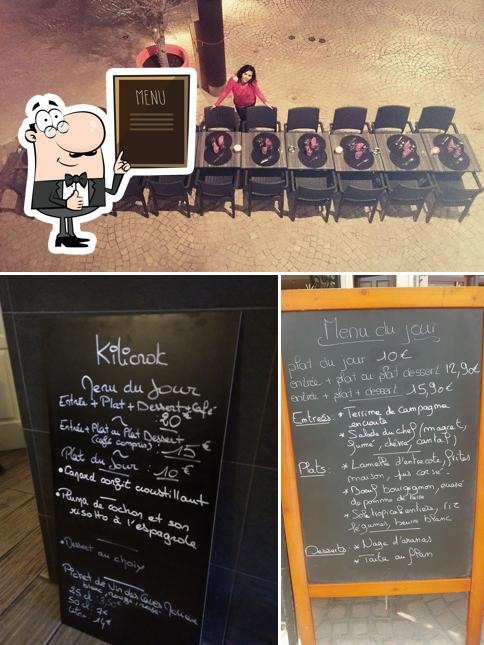 MENU
Kilicrok
Menu du Jour
Entrée + Plat + Dessert + Café
20€
Entrée + Plat ou Plat Dessert
(café compris) : 15€
Plat du Jour : 10€
• Canard confit croustillant
• Pluma de cochon et son
risotto à l'espagnole
• Dessert au choix
Pichet de vin des
blanc, rouge, rosé
25 cl
50 cl : 7€
Litre 14€
Menu du jour
plat du jour 10€
entrée + plat ou plat dessert 12,90€
entrée + plat + dessert 15,90€
Entrées : * Terrine de campagne
en croute
* Salade du chef (magret,
fumé, chèvre, cantal)
Plats : * Lamelle d'entrecote, frites
maison, jus corsé
* Boeuf bourguignon, écrasé
de pomme de terre
* Sole tropicale entière, riz
légumes, beurre blanc
Desserts : * Nage d'ananas
* Tarte au flan